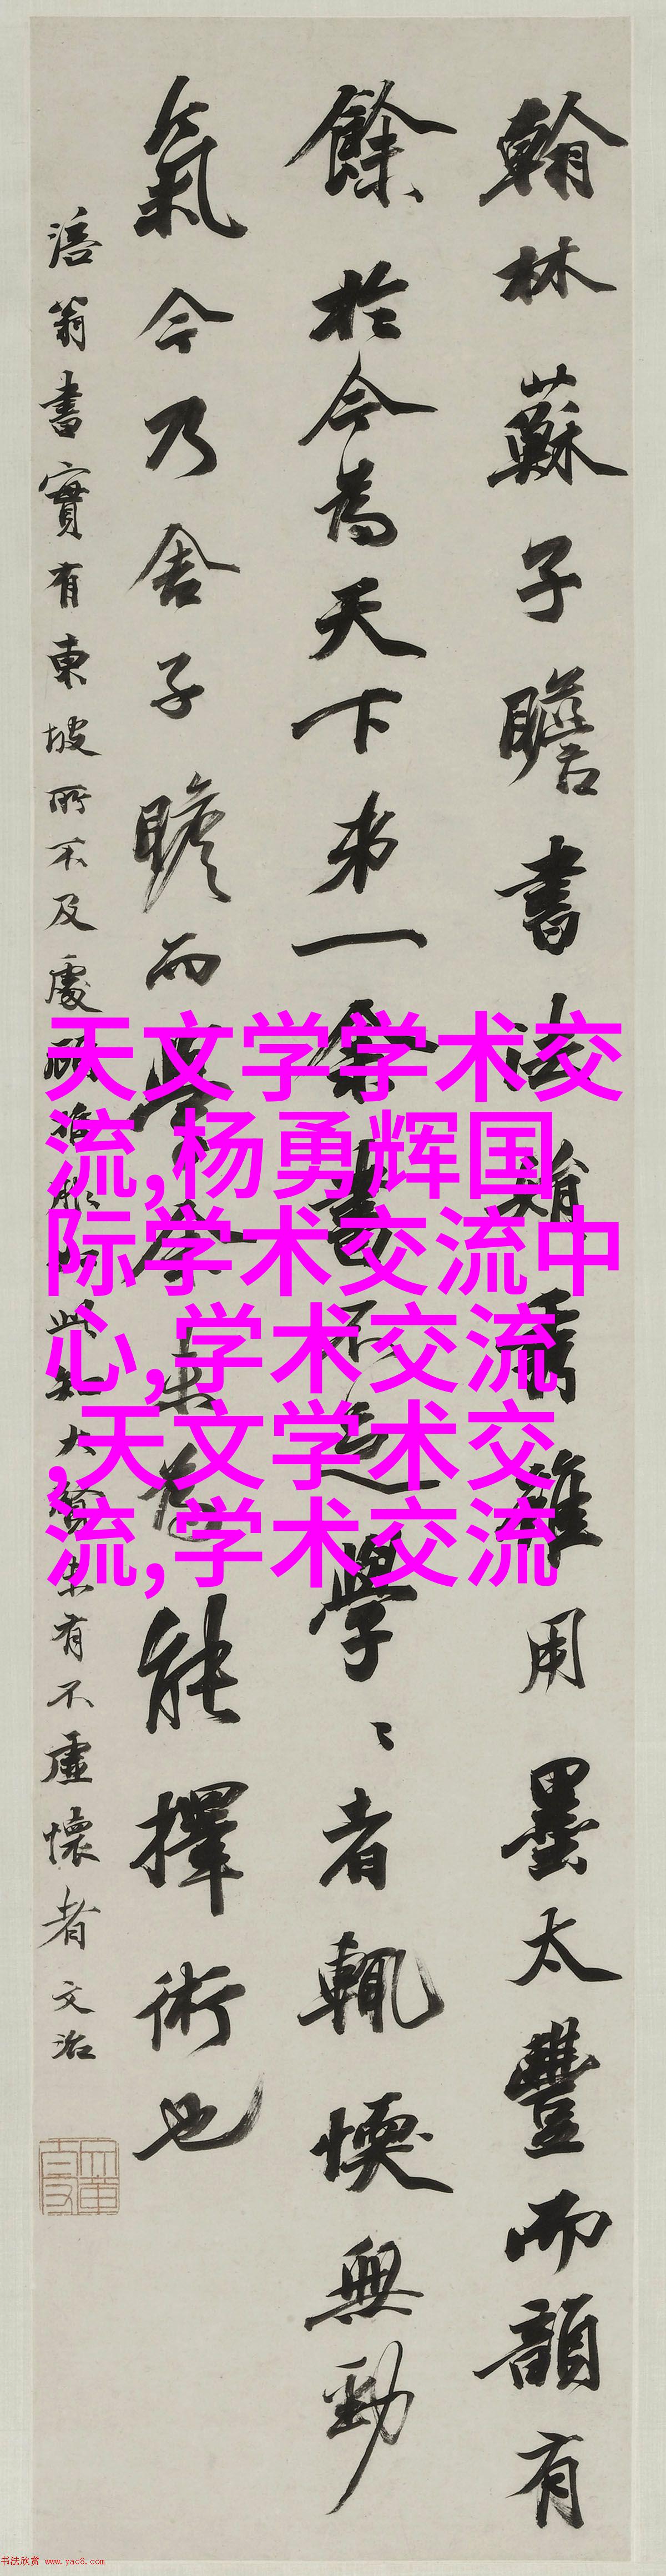 翰林蘇子瞻書法娟秀雖用墨太豐而韻有
餘於今為天下第一余書不足學〻者輒愞無勁
氣今乃舍子瞻而學余未為能擇術也
涪翁書實有東坡所不及處顧推服如此知大賢未有不虛懷者 文治
天文学学术交
流,杨勇辉国
际学术交流中
心,学术交流
,天文学术交
流,学术交流
书法欣赏 www.yac8.com